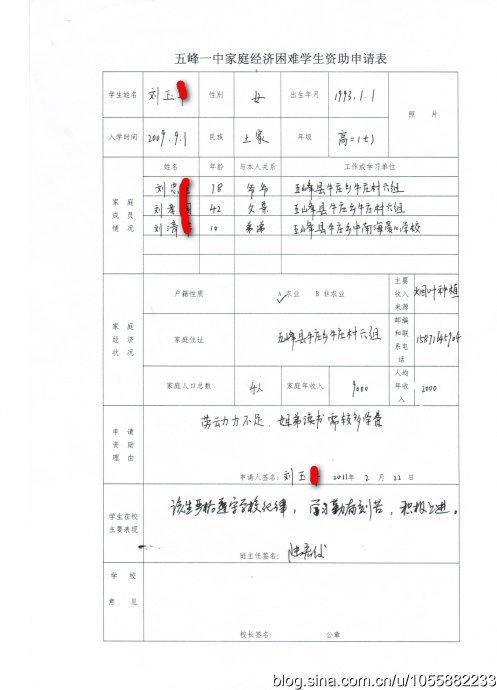 五峰一中家庭经济困难学生资助申请表
学生姓名 刘玉 性别 女 出生年月 1993.1.1 照 片
入学时间 2009.9.1 民族 土家 年级 高二(七)
家庭成员情况 姓名 年龄 与本人关系 工作或学习单位
刘忠 78 爷爷 五峰县牛庄乡牛庄村六组
刘孝 42 父亲 五峰县牛庄乡牛庄村六组
刘清 10 弟弟 五峰县牛庄乡中南海小学校
家庭经济状况 户籍性质 A 农业 B 非农业 主要收入来源 烟叶种植
家庭住址 五峰县牛庄乡牛庄村六组 邮编和联系电话
家庭人口总数 4人 家庭年收入 9000 人均年收入 2000
申请资助理由 劳动力不足，姐弟读书需较多学费
申请人签名: 刘玉 2011年 2 月 22 日
学生在校主要表现 该生严格遵守学校纪律，学习勤奋刻苦，积极上进。
班主任签名:
学校意见
校长签名: 公章
blog.sina.com.cn/u/1055882233